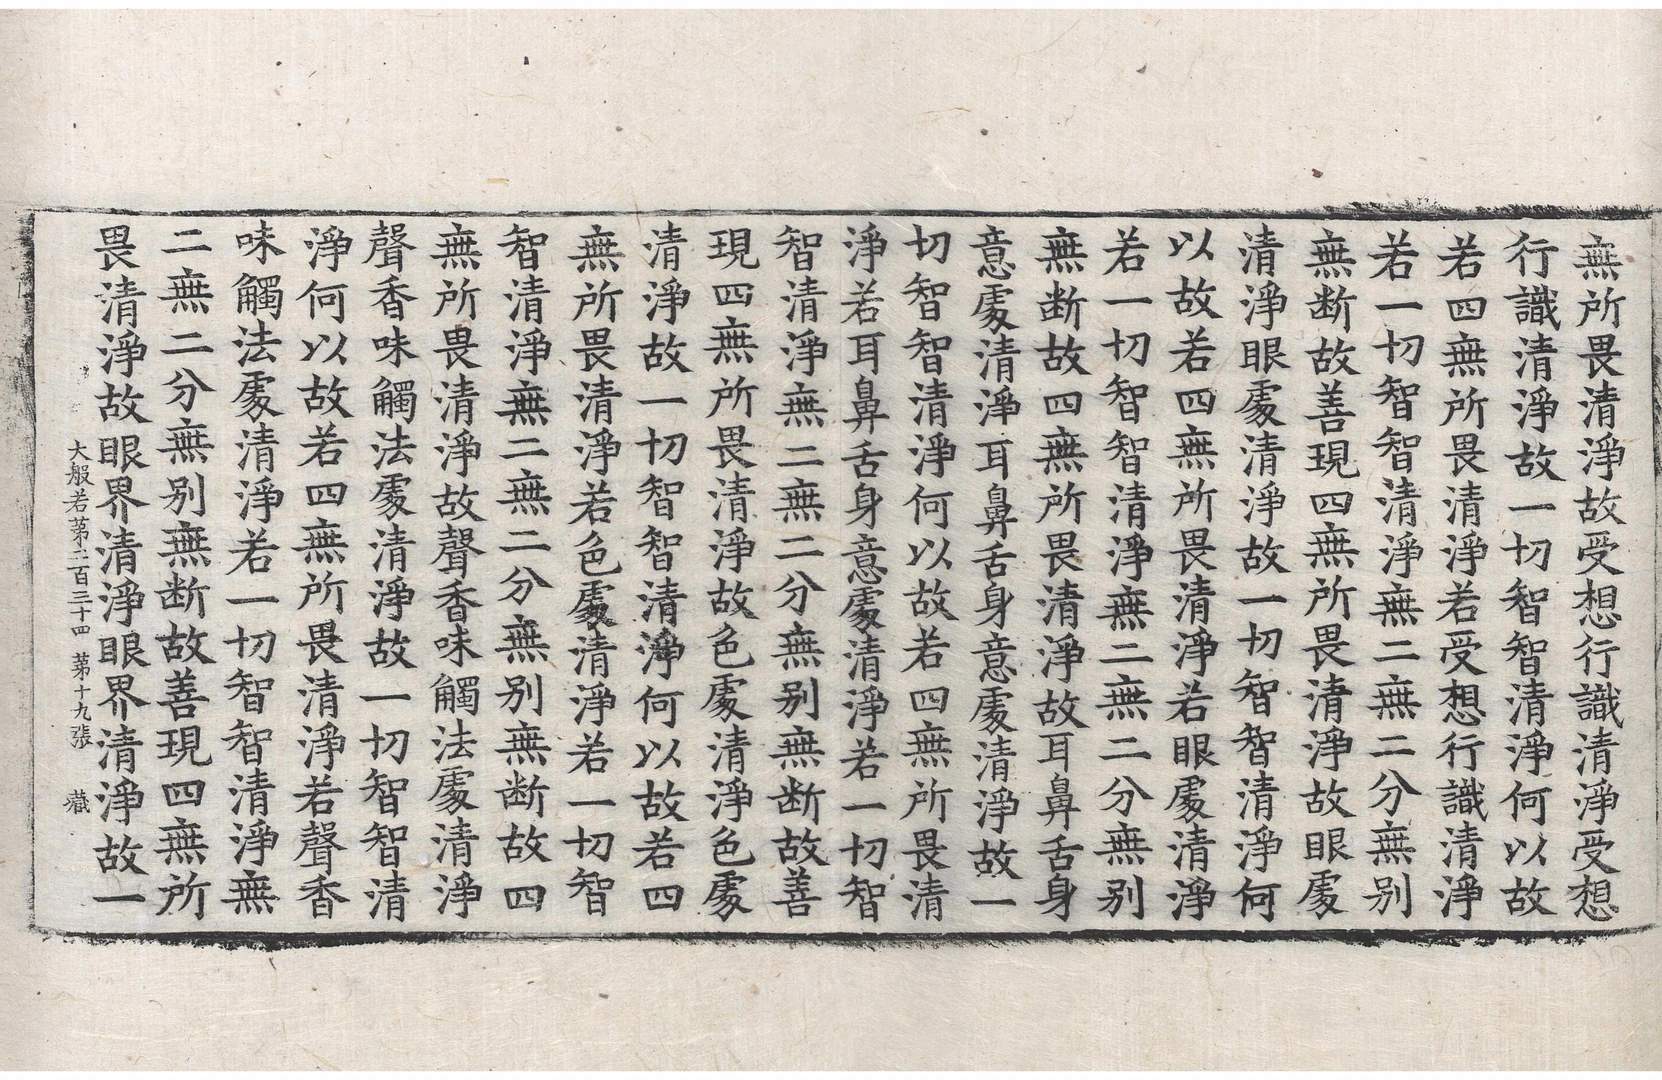 無所畏清淨故受想行識清淨受想
行識清淨故一切智智清淨何以故
若四無所畏清淨若受想行識清淨
若一切智智清淨無二無二分無别
無断故善現四無所畏清淨故眼處
清淨眼處清淨故一切智智清淨何
以故若四無所畏清淨若眼處清淨
若一切智智清淨無二無二分無别
無断故四無所畏清淨故耳鼻舌身
意處清淨耳鼻舌身意處清淨故一
切智智清淨何以故若四無所畏清
淨若耳鼻舌身意處清淨若一切智
智清淨無二無二分無别無断故善
現四無所畏清淨故色處清淨色處
清淨故一切智智清淨何以故若四
無所畏清淨若色處清淨若一切智
智清淨無二無二分無别無断故四
無所畏清淨故聲香味觸法處清淨
聲香味觸法處清淨故一切智智清
淨何以故若四無所畏清淨若聲香
味觸法處清淨若一切智智清淨無
二無二分無别無断故善現四無所
畏清淨故眼界清淨眼界清淨故一
大般若第二百三十四 第十九張 藏